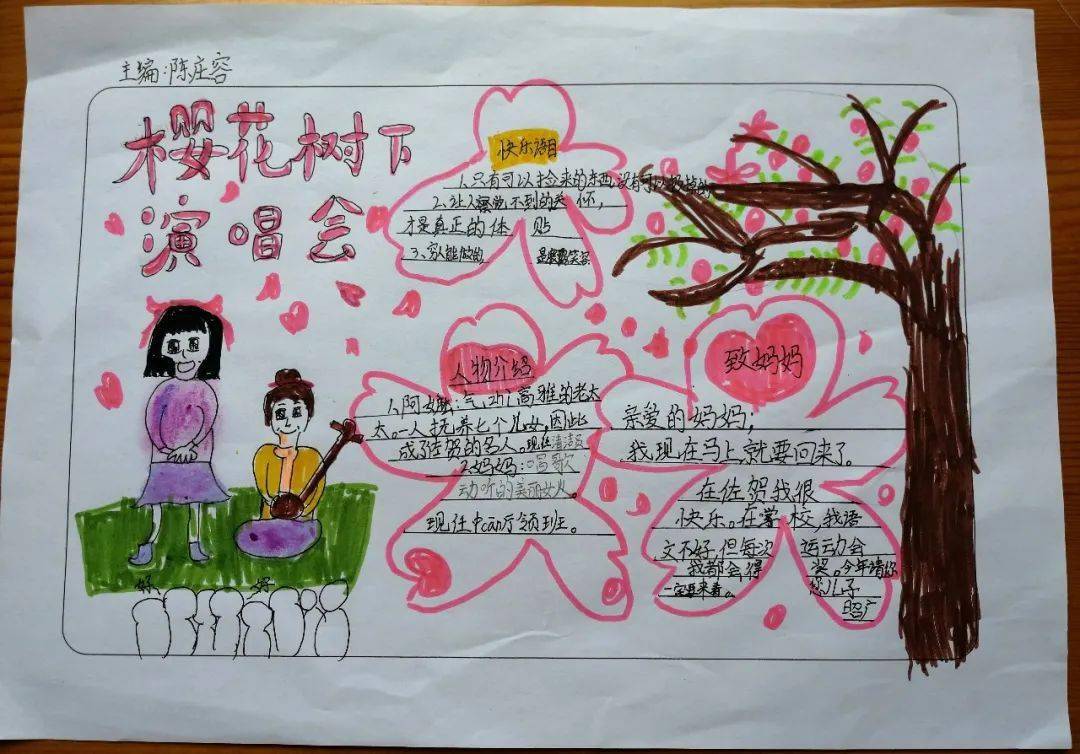 主编:陈庄容
樱花树下
演唱会
快乐语目
1.只有可以捡来的东西,没有可以扔掉的
2、让人察觉不到的关怀,
才是真正的体贴
3、穷人能做的是展露笑容
人物介绍
1.阿嬷:气功高雅的老太
太。一人抚养七个儿女,因此
成了佐贺的名人。现任清洁员
2.妈妈:唱歌
动听的美丽女人。
现任中can厅领班。
致妈妈
亲爱的妈妈;
我现在马上就要回来了。
在佐贺我很
快乐。在学校,我语
文不好,但每次运动会
我都会得奖。今年请你
一定要来看。您儿子
昭广
好 好